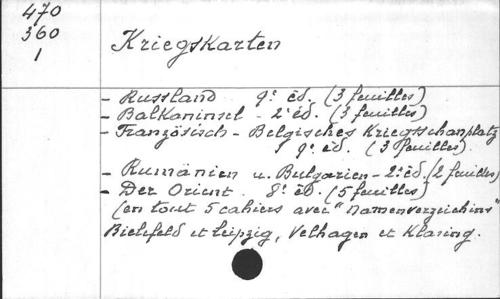 470
360
1
Kriegskarten
- Russland 9ᵉ éd. (3 feuilles)
- Balkaninsel - 2ᵉ éd. (3 feuilles)
- Französisch - Belgisches Kriegsschauplatz
9ᵉ éd. (3 feuilles)
- Rumänien u. Bulgarien - 2ᵉ éd. (2 feuilles)
- Der Orient. 8ᵉ éd. (5 feuilles)
(en tout 5 cahiers avec "Namenverzeichins"
Bielefeld et Leipzig, Velhagen et Klasing.